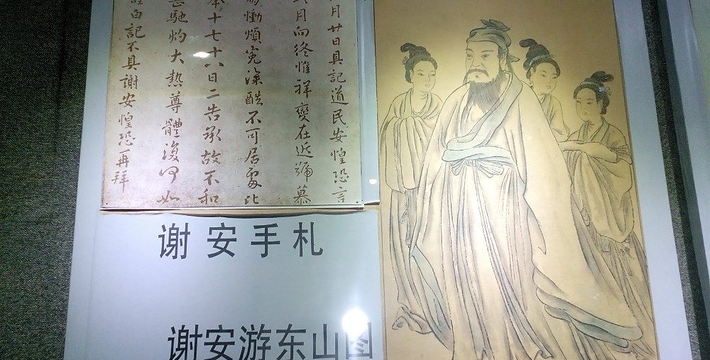 月廿日具記道民安惶恐言
月向終惟祥變在近號慕
慟煩冤深酷不可居處比
奉十七十八日二告承故不和
馳灼大熱尊體復何如
白記不具謝安惶恐再拜
谢安手札
谢安游东山图